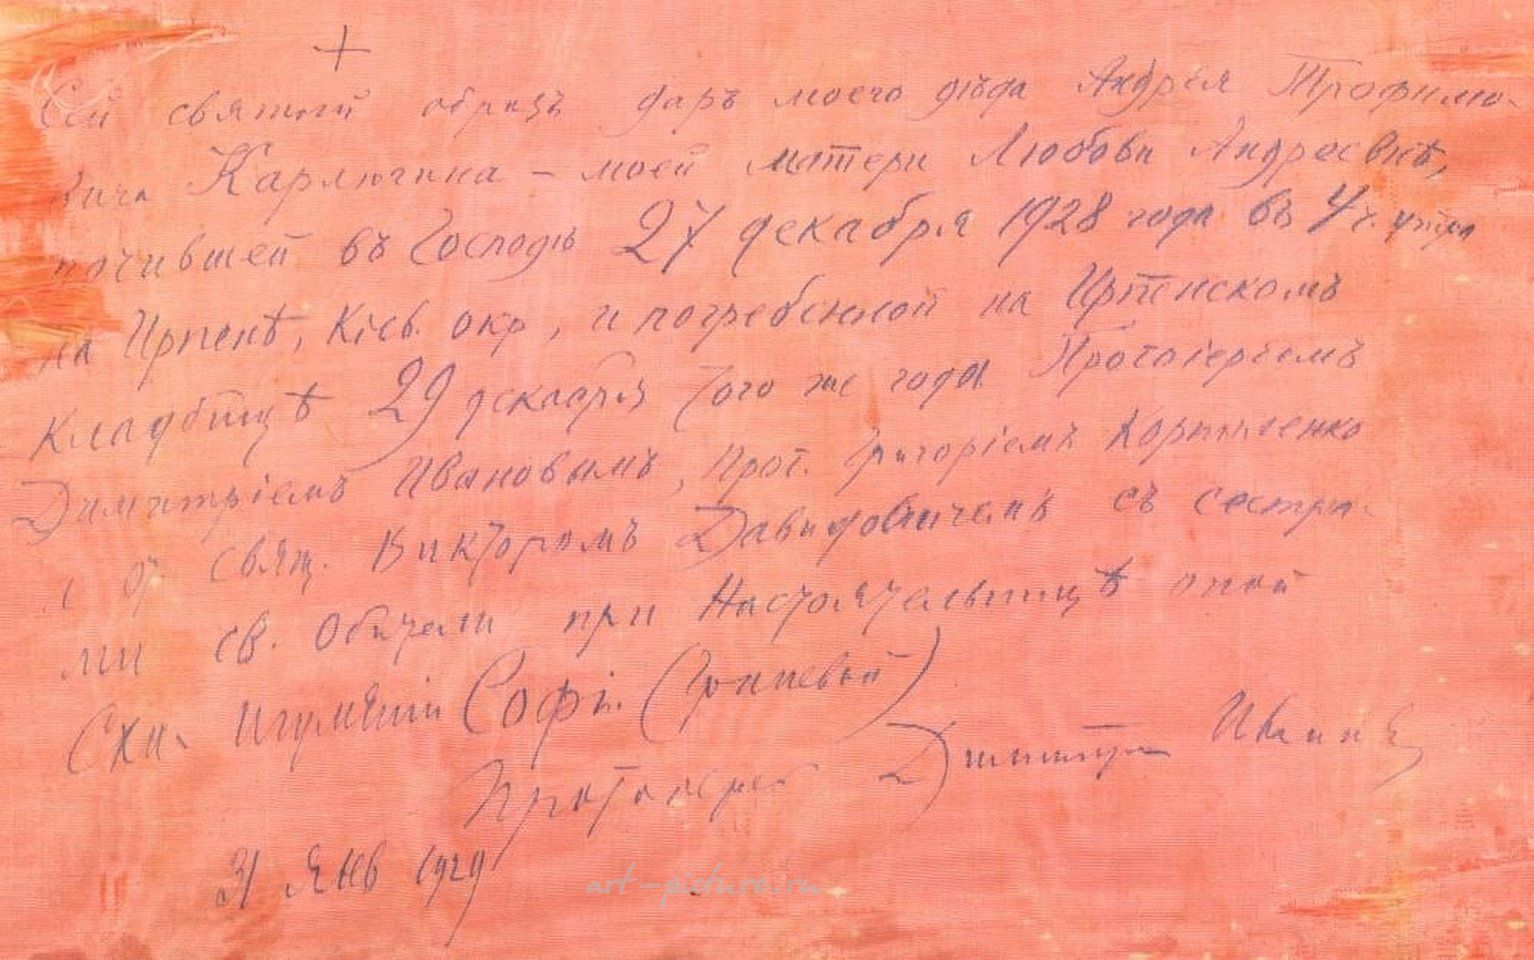 +
Сей святой образъ даръ моего дѣда Андрея Трофимо-
вича Карлюгина – моей матери Любови Андреевнѣ,
почившей въ Господѣ 27 декабря 1928 года въ 4 ч. утра
на Ирпенѣ, Кіев. окр., и погребенной на Ирпенскомъ
кладбищѣ 29 декабря того же года Протоіереемъ
Димитріемъ Ивановымъ, Прот. Григоріемъ
и от свящ. Викторомъ Давидовичемъ съ сестра-
ми св. Обители при Настоятельницѣ оной
Схи- игуменіи Софіи
Протоиерей Димитрій Иванов
31 Янв 1929
art-picture.ru